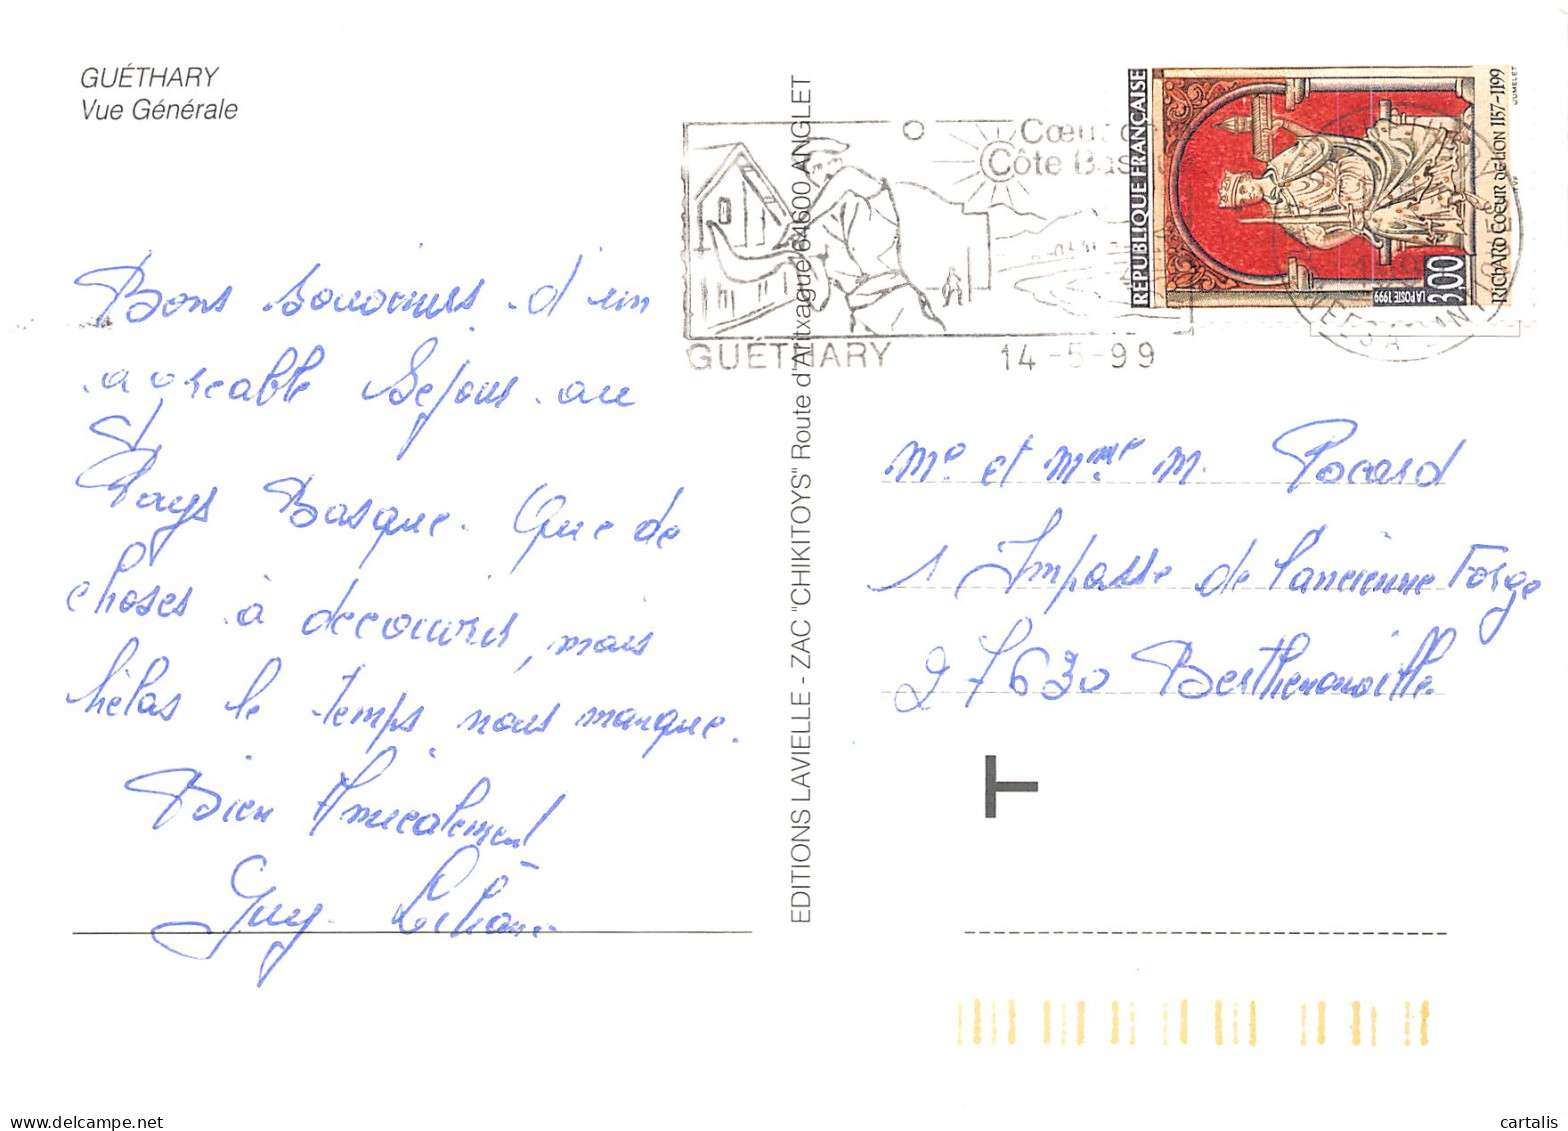 GUÉTHARY
Vue Générale
Bons souvenirs d'un
agréable séjour au
Pays Basque. Que de
choses à découvrir, mais
hélas le temps nous manque.
Bien Amicalement
Guy Liliane
EDITIONS LAVIELLE - ZAC "CHIKITOYS" Route d'Aritxague 64600 ANGLET
Cœur
Côte Bas
GUÉTHARY 14-5-99
RÉPUBLIQUE FRANÇAISE
3,00
LA POSTE 1999
RICHARD CŒUR DE LION 1157-1199
JUMELET
Mr et Mme M. Pocard
1 Impasse de l'ancienne Forge
27630 Berthenonville
T
cartalis